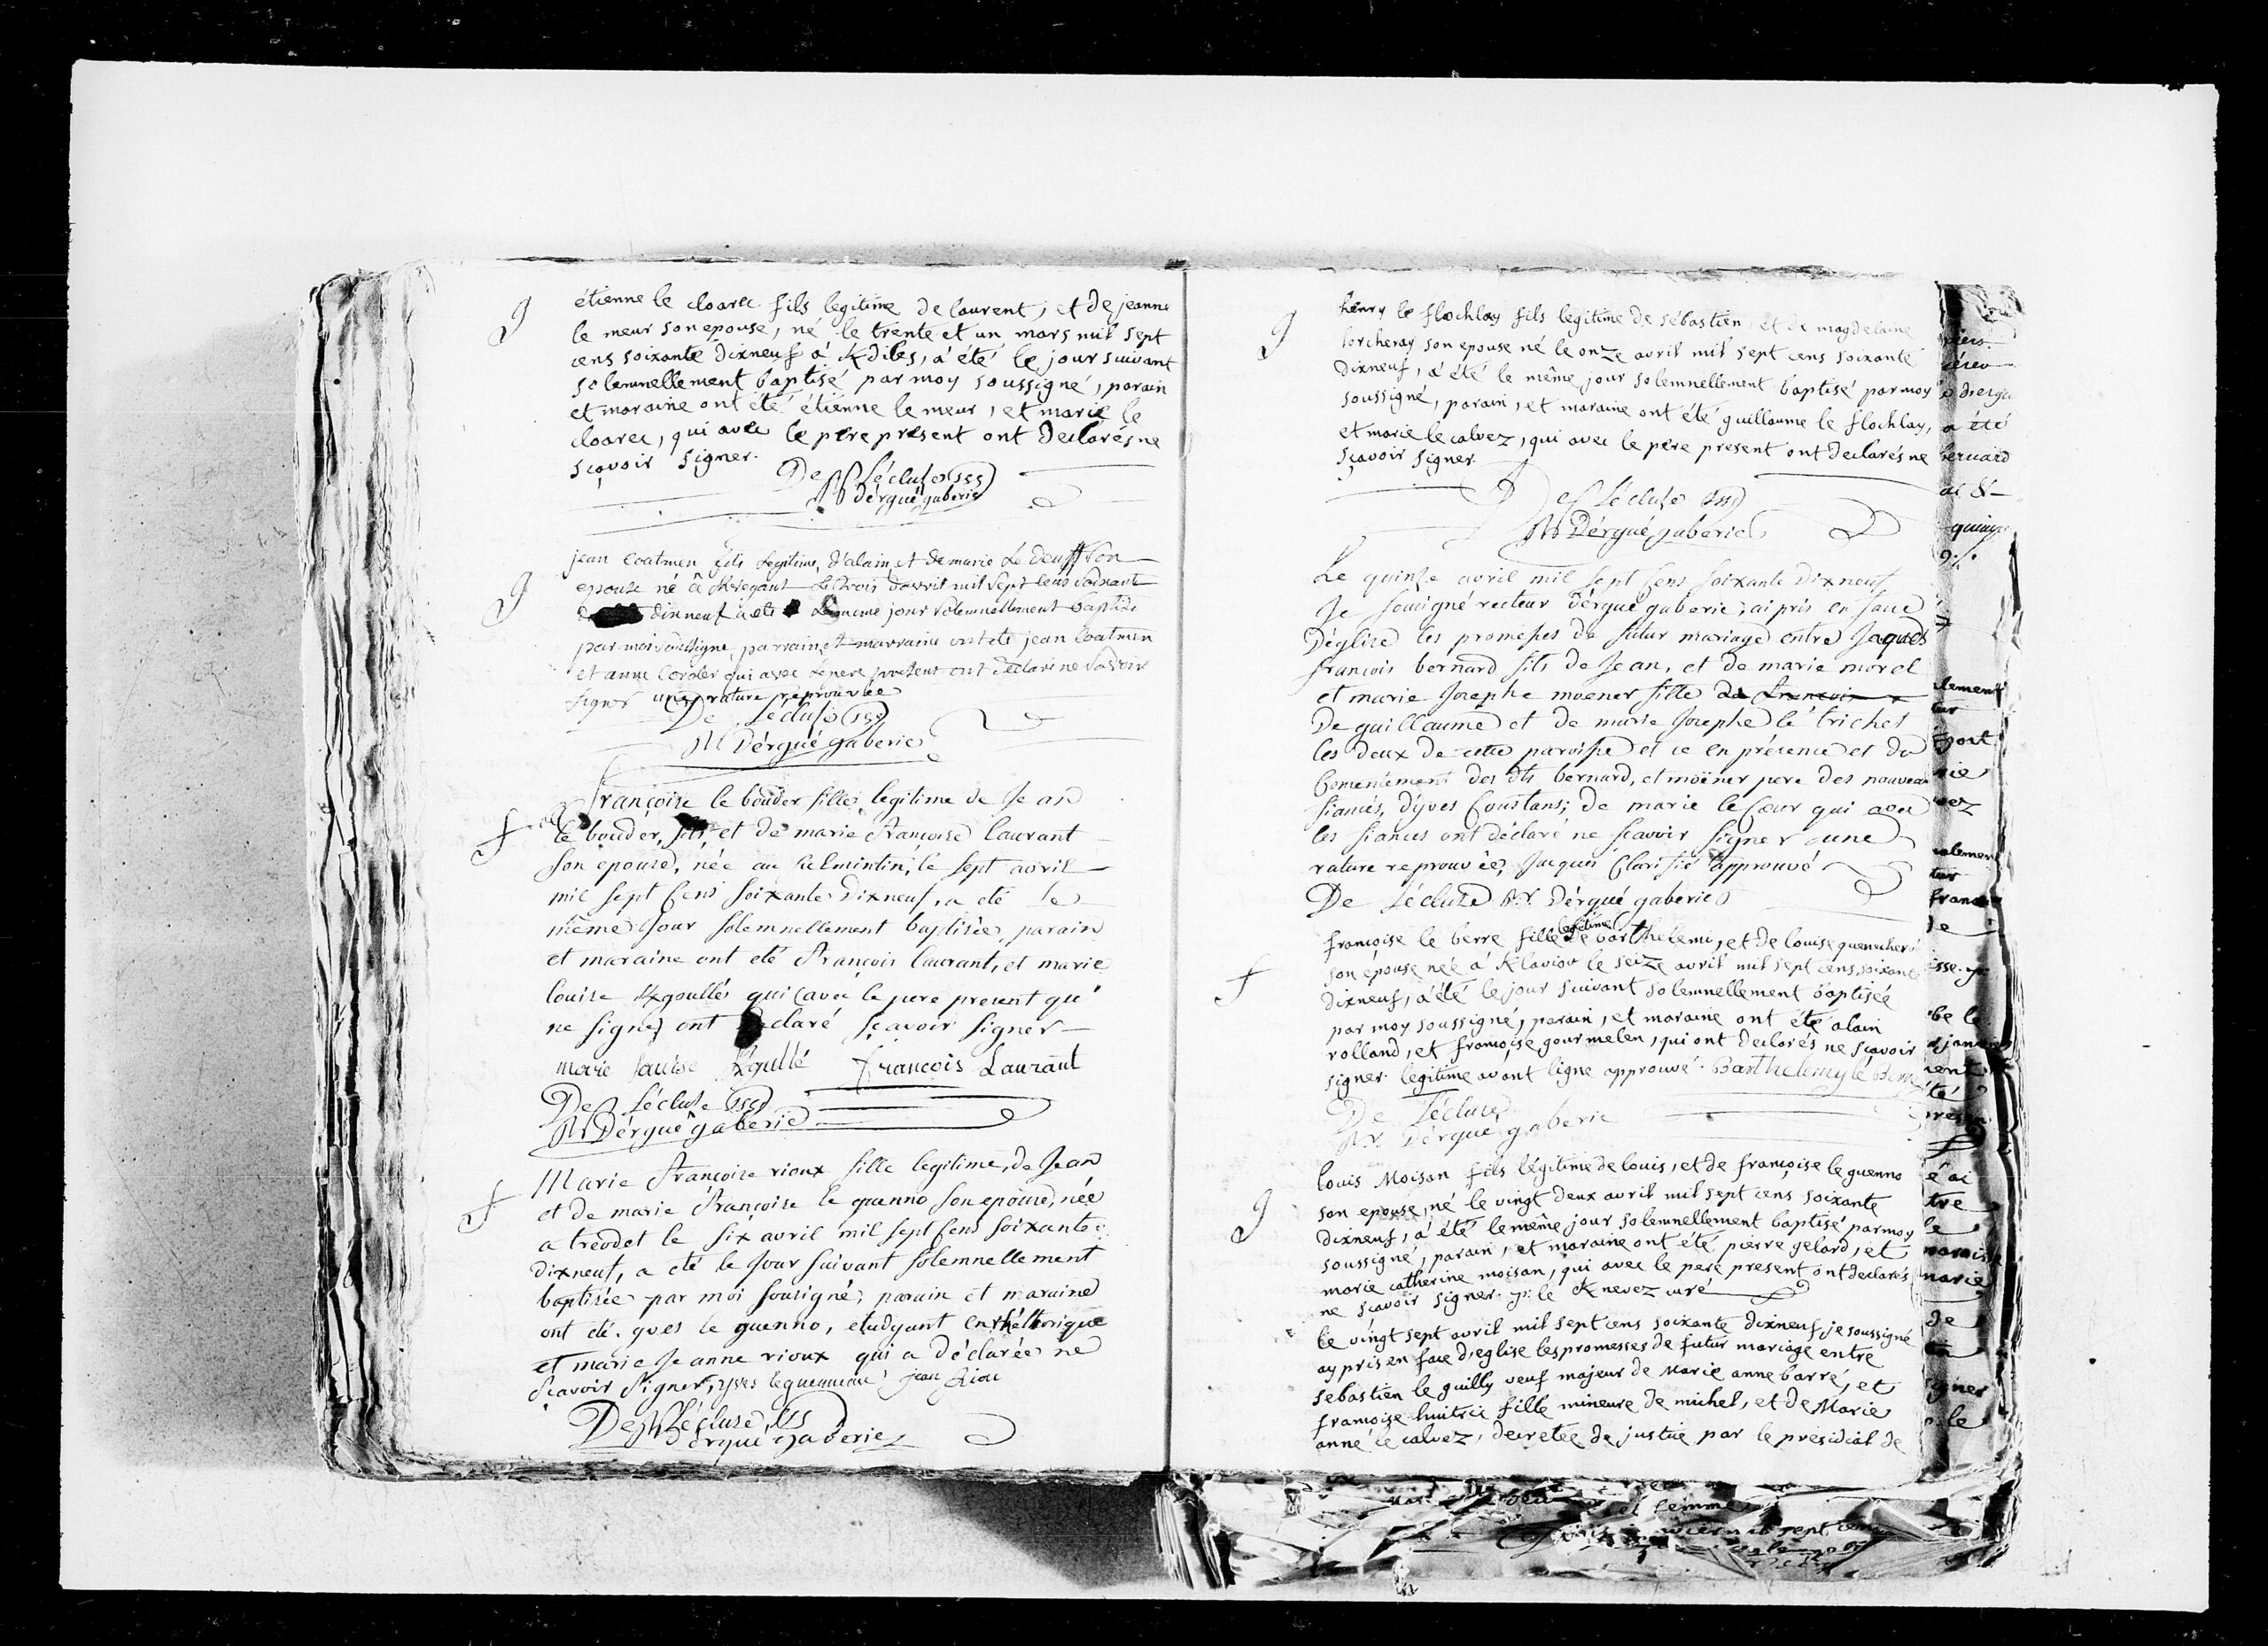 G
étienne le cloarec fils legitime de laurent, et de jeanne
le meur son epouse, né le trente et un mars mil sept
cens soixante dixneuf á Kdiles, á été le jour suivant
solemnellement baptisé par moy soussigné, parain
et maraine ont été étienne le meur, et marie le
cloarec, qui avec le pere present ont declarés ne
sçavoir signer.
De Lécluse
Dérgué gaberic
G
jean coatmen fils legitime d'alain, et de marie Le deuff son
epouse né â Kvegant le trois d'avril mil sept cens soixante
dixneuf à eté le meme jour solemnellement baptisé
par moi soussigne, parrain et marraine ont eté jean Coatmen
et anne Corder qui avec le pere present ont declaré ne savoir
signer une rature réprouvée
De Lécluse
Dérgué gaberic
françoise le bouder fille legitime de Jean
f
le bouder, et de marie françoise laurant
son epouse, née au Kelmintin, le sept avril
mil sept cens soixante dixneuf, a eté le
même jour solemnellement baptisée, parain
et maraine ont eté François laurant, et marie
louise Kgoullé qui (avec le pere present qui
ne signe) ont declaré sçavoir signer
marie louise Kgullé françois Laurant
De Lécluse
Dérgué gaberic
f
Marie françoise rioux fille legitime, de Jean
et de marie françoise le guenno son epouse, née
a treodet le six avril mil sept cens soixante
dixneuf, a eté le jour suivant solemnellement
baptisée par moi sousigné, parain et maraine
ont eté. yves le guenno, etudyant en rhéttorique
et marie Jeanne rioux qui a déclarée ne
sçavoir signer, yves leguenneau jean Riou
De Lécluse
Dérgué gaberic
G
henry le flochlay fils legitime de sébastien, et de magdelaine
lorcheray son epouse né le onze avril mil sept cens soixante
dixneuf, á été le même jour solemnellement baptisé par moy
soussigné, parain, et maraine ont été guillaume le flochlay,
et marie le calvez, qui avec le pere present ont declarés ne
sçavoir signer.
De Lécluse
Dérgué gaberic
Le quinse avril mil sept cens soixante dixneuf
Je sousigné recteur dérgué gaberic, ai pris en face
d'église les promesses de futur mariage entre Jaques
françois bernard fils de Jean, et de marie morel
et marie Josephe moener fille de francois
De guillaume et de marie Josephe le triches
les deux de cette paroisse et ce en présence et du
consentement des dts bernard, et moëner pere des nouveau
fiancés, d'yves Coustans; de marie le Cœur qui avec
les fiancés ont déclaré ne scavoir signer une
rature reprouvée, Jaques Clarifié approuvé
De Lécluse Rr. Dérgué gaberic
legitime
f
françoise le berre fille de barthelemi, et de louise quenecherv
son epouse née á Klaviou le seize avril mil sept cens soixante
dixneuf, á été le jour suivant solemnellement baptisée
par moy soussigné, parain, et maraine ont été alain
rolland, et françoise gourmelen, qui ont declarés ne sçavoir
signer. legitime avant ligne approuvé. Barthelemy le Berre
De Lécluse
Rr. Dérgué gaberic
G
louis Moisan fils légitime de louis, et de françoise le guenno
son epouse, né le vingt deux avril mil sept cens soixante
dixneuf, á été le même jour solemnellement baptisé par moy
soussigné, parain, et maraine ont été pierre gelard, et
marie catherine moisan, qui avec le pere present ont declarés
ne sçavoir signer. le Knevez curé
le vingt sept avril mil sept cens soixante dixneuf, je soussigné
ay pris en face d'eglise les promesses de futur mariage entre
sebastien le guilly veuf majeur de Marie anne barré, et
françoise huitric fille mineure de michel, et de Marie
anne le calvez, decretée de justice par le présidial de